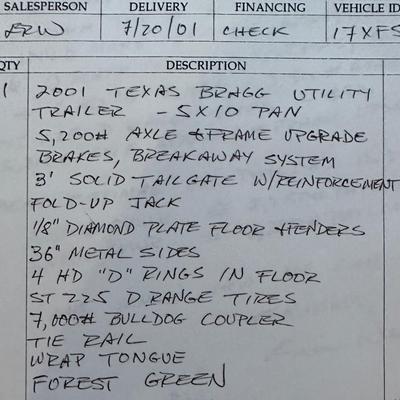 SALESPERSON DELIVERY FINANCING VEHICLE ID
ERW 7/20/01 CHECK 17XFS
QTY DESCRIPTION
1 2001 TEXAS BRAGG UTILITY
TRAILER - 5X10 PAN
5,200# AXLE & FRAME UPGRADE
BRAKES, BREAKAWAY SYSTEM
3' SOLID TAILGATE W/REINFORCEMENT
FOLD-UP JACK
1/8" DIAMOND PLATE FLOOR & FENDERS
36" METAL SIDES
4 HD "D" RINGS IN FLOOR
ST 225 D RANGE TIRES
7,000# BULLDOG COUPLER
TIE RAIL
WRAP TONGUE
FOREST GREEN